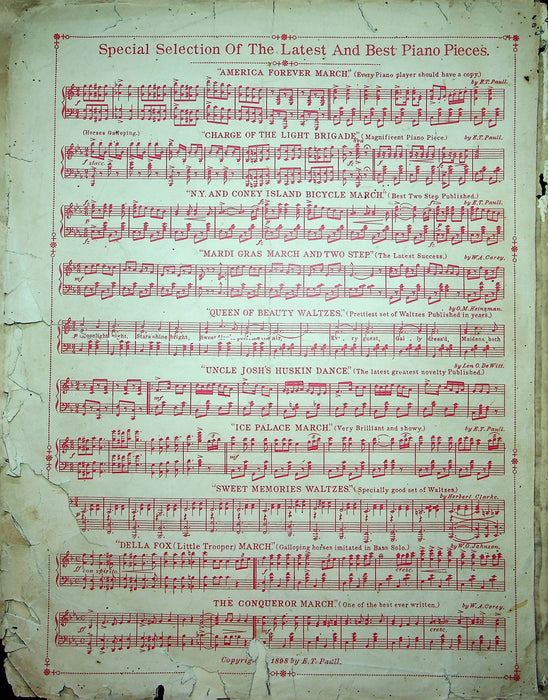 Special Selection Of The Latest And Best Piano Pieces.
"AMERICA FOREVER MARCH." (Every Piano player should have a copy.)
by E.T. Paull.
(Horses Galloping.) "CHARGE OF THE LIGHT BRIGADE." (Magnificent Piano Piece.) by E.T. Paull.
"N.Y. AND CONEY ISLAND BICYCLE MARCH." (Best Two Step Published.)
by E.T. Paull.
"MARDI GRAS MARCH AND TWO STEP." (The Latest Success.) by W.A. Corey.
by O.M. Heinzman.
"QUEEN OF BEAUTY WALTZES." (Prettiest set of Waltzes Published in years.)
light, Stars shine bright, air. Ev'ry guest, Gaily dress'd, Maidens both
by Len O. DeWitt.
"UNCLE JOSH'S HUSKIN DANCE." (The latest greatest novelty Published.)
"ICE PALACE MARCH." (Very Brilliant and showy.) by E.T. Paull.
"SWEET MEMORIES WALTZES." (Specially good set of Waltzes.)
by Herbert Clarke.
"DELLA FOX (Little Trooper) MARCH." (Galloping horses imitated in Bass Solo.) by W.O. Johnson.
ff con spirito cresc.
THE CONQUEROR MARCH." (One of the best ever written.) by W.A. Corey.
cresc.
Copyright 1898 by E.T. Paull.